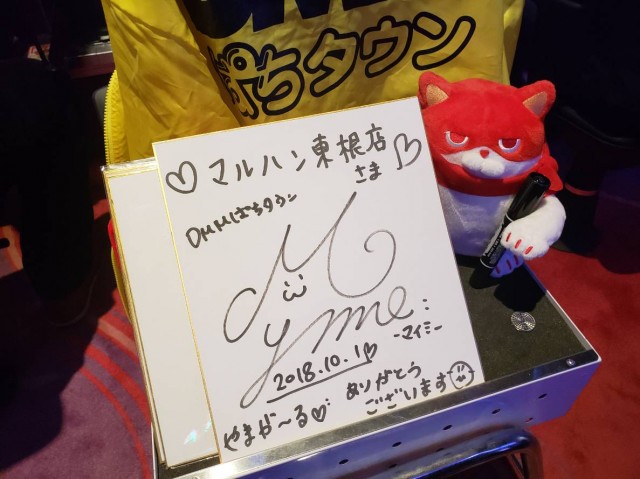 ぱちタウン
♡マルハン東根店♡
さま
DMMぱちタウン
-マイミー
2018.10.1♡
やまが〜る♡
ありがとう
ございます